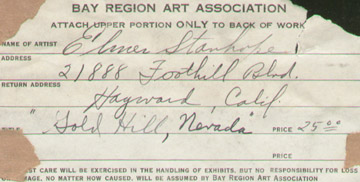 BAY REGION ART ASSOCIATION
ATTACH UPPER PORTION ONLY TO BACK OF WORK
NAME OF ARTIST Elmer Stanhope
ADDRESS 21888 Foothill Blvd.
RETURN ADDRESS Hayward, Calif.
TITLE "Gold Hill, Nevada" PRICE 25.00
PRICE
EST CARE WILL BE EXERCISED IN THE HANDLING OF EXHIBITS, BUT NO RESPONSIBILITY FOR LOSS
MAGE, NO MATTER HOW CAUSED, WILL BE ASSUMED BY BAY REGION ART ASSOCIATION